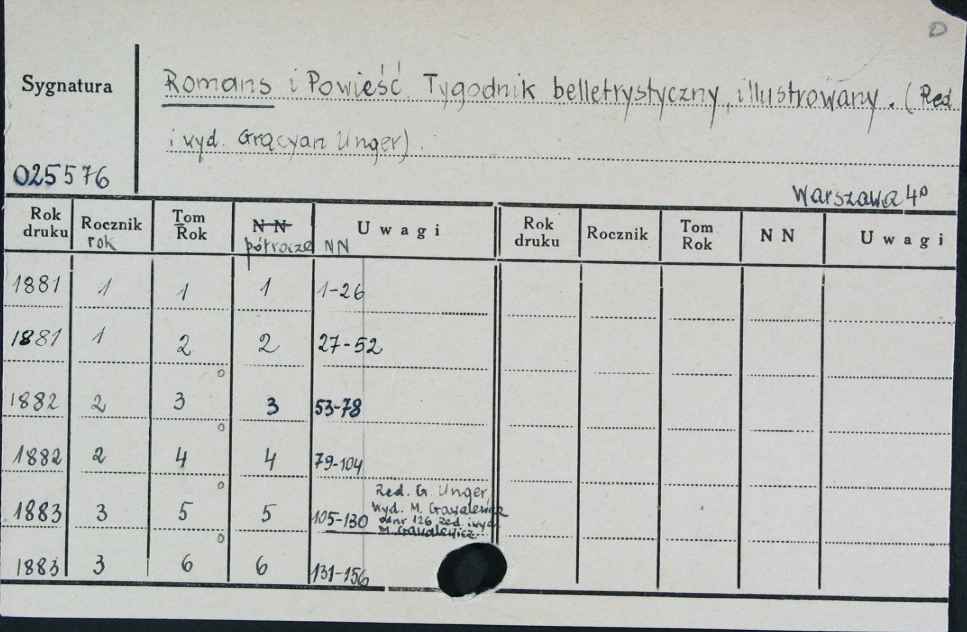 D
Sygnatura Romans i Powieść. Tygodnik belletrystyczny, illustrowany. (Red.
i wyd. Gracyan Unger).
025576
Warszawa 4°
Rok druku Rocznik rok Tom Rok N N półrocze U w a g i NN Rok druku Rocznik Tom Rok N N U w a g i
1881 1 1 1 1-26
1881 1 2 2 27-52
1882 2 3 3 53-78
1882 2 4 4 79-104
Red. G. Unger,
wyd. M. Gawalewicz
1883 3 5 5 105-130 od nr 126 red. i wyd.
M. Gawalewicz
1883 3 6 6 131-156